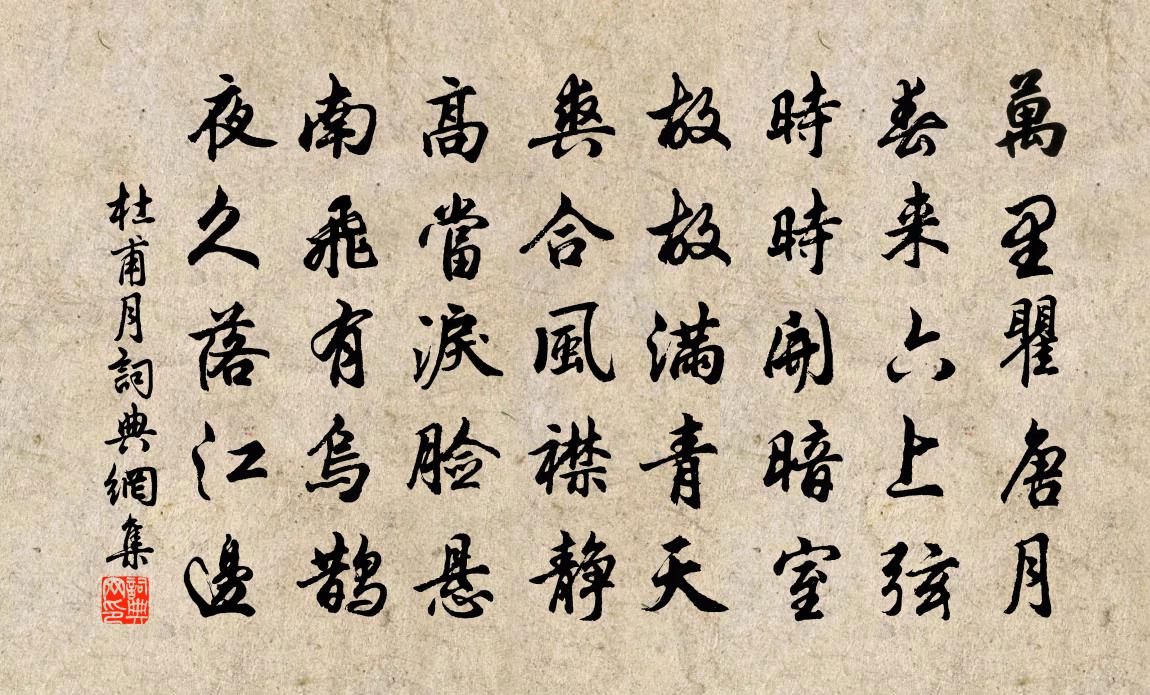 萬里瞿唐月
春来六上弦
時時開暗室
故故满青天
爽合風襟静
高當淚脸悬
南飛有烏鹊
夜久落江邊
杜甫月詞典網集
詞典网印